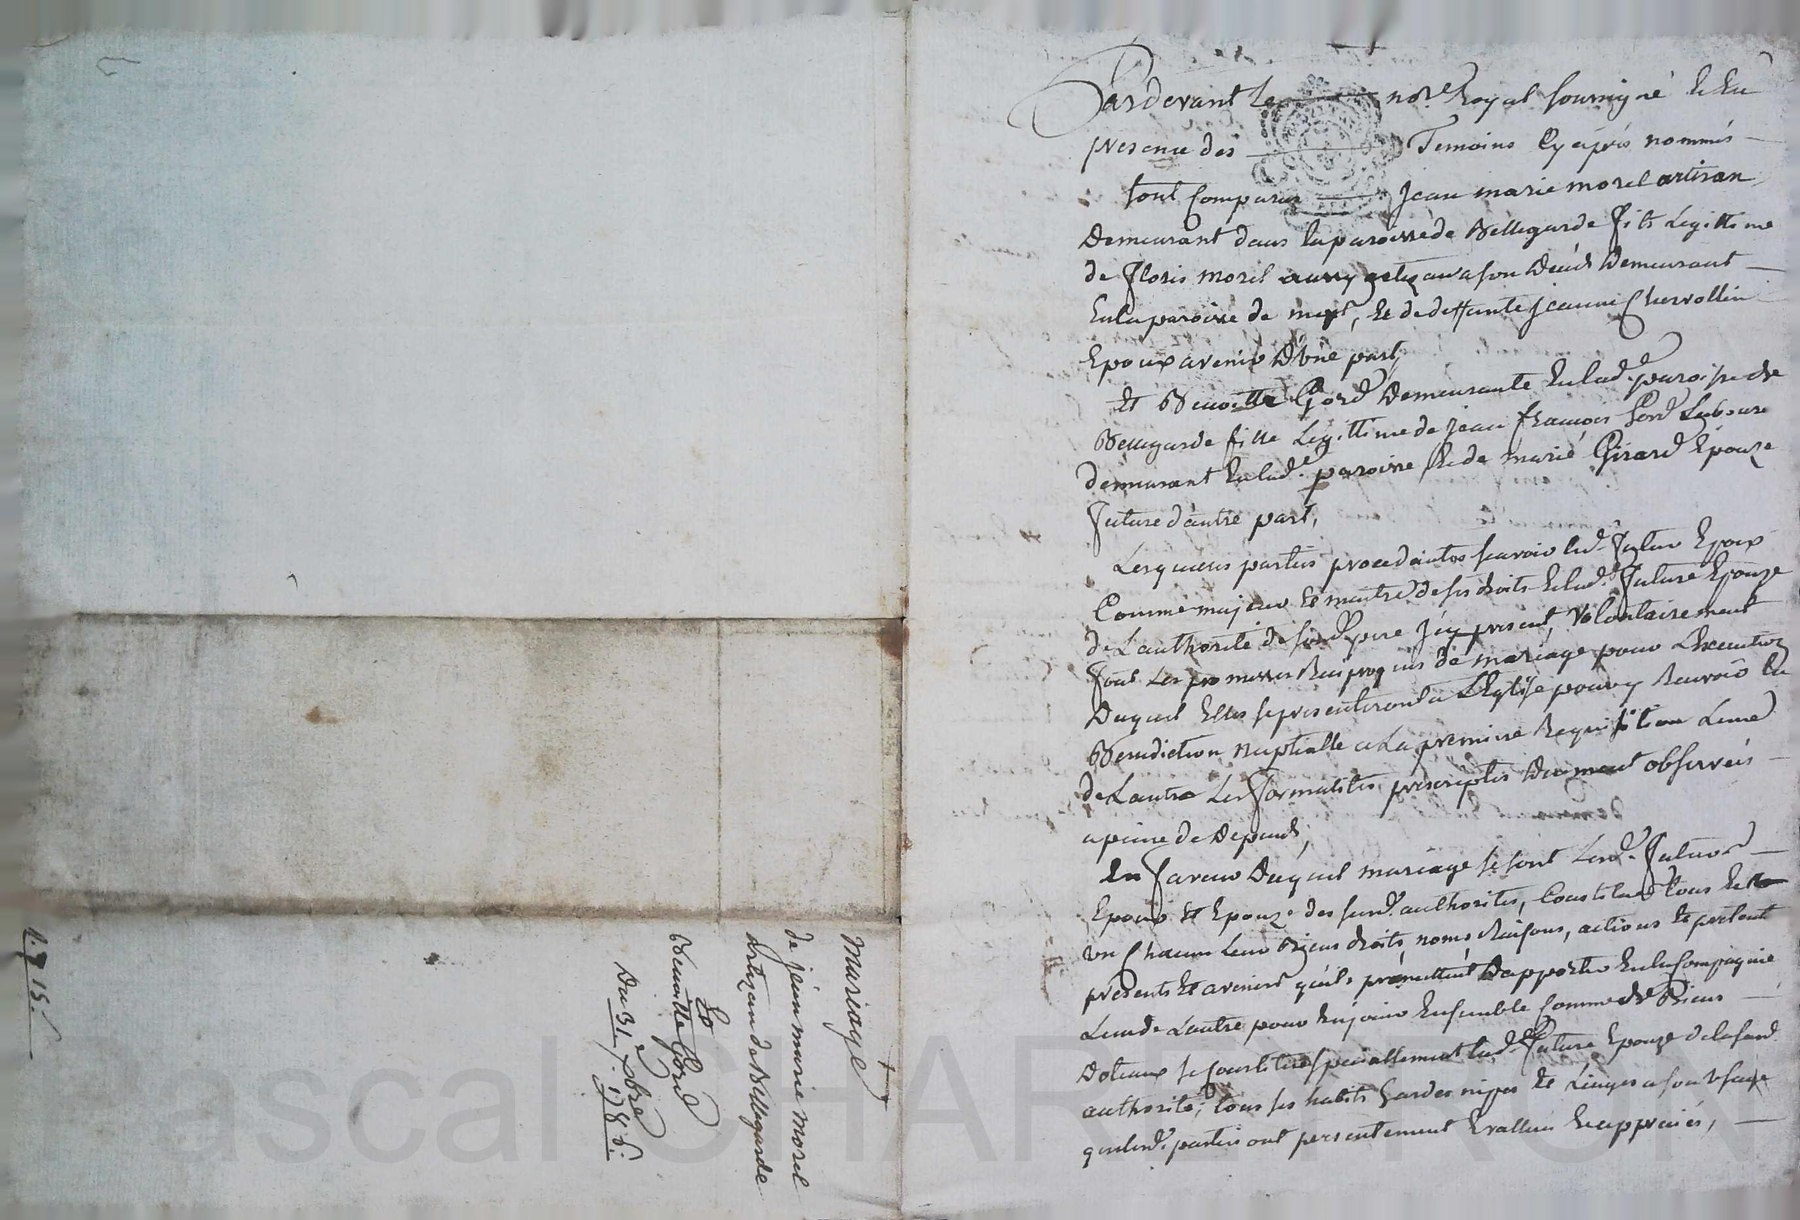 Pardevant Le nore. Royal soussigné Et En
presence des Temoins Cy après nommés
sont Comparus Jean marie morel artisan
Demeurant dans la paroisse de Bellegarde fils Legittime
de floris morel aussy artizan a son Deuch Demeurant
En la paroisse de Et de deffunte jeanne Chervollin
Epoux avenir D'une part,
Et Benoitte Gord Demeurante En lad. paroisse de
Bellegarde fille Legittime de jean françois Gord Laboure
demeurant En lad. paroisse Et de marie Girard Epouze
future d'autre part,
Lesquelles parties procedantes scavoir led. futur Epoux
Comme majeur Et maitre de ses droits Et lad. future Epouze
de L'authorité de sond. pere icy present, volontairement
font Les promesses Reciproques de mariage pour L'execution
Duquel Elles se presenteront a L'Eglise pour y Recevoir la
Benediction nuptialle a La premiere Requisition L'une
de L'autre Les formalites prescriptes Dument observées
a peine de Depends,
En faveur Duquel mariage se sont Lesd. futurs
Epoux Et Epouze des susd. authorites, Constitué tous Et
un Chacun Leurs Biens droits, noms Raisons, actions Et
presents Et avenirs qu'ils promettent D'apporter En la Compagnie
L'un de L'autre pour En jouir Ensemble Comme de Biens
Dotaux se Constitue specialement lad. future Epouze de la susd.
authorité, tous ses habits hardes nipes Et Linges a son usage
que lesd. parties ont presentement Evallué Et appreciés,
mariage
de jean marie morel
artizan de Bellegarde
Et
Benoitte Gord
Du 31. xbre 1786.